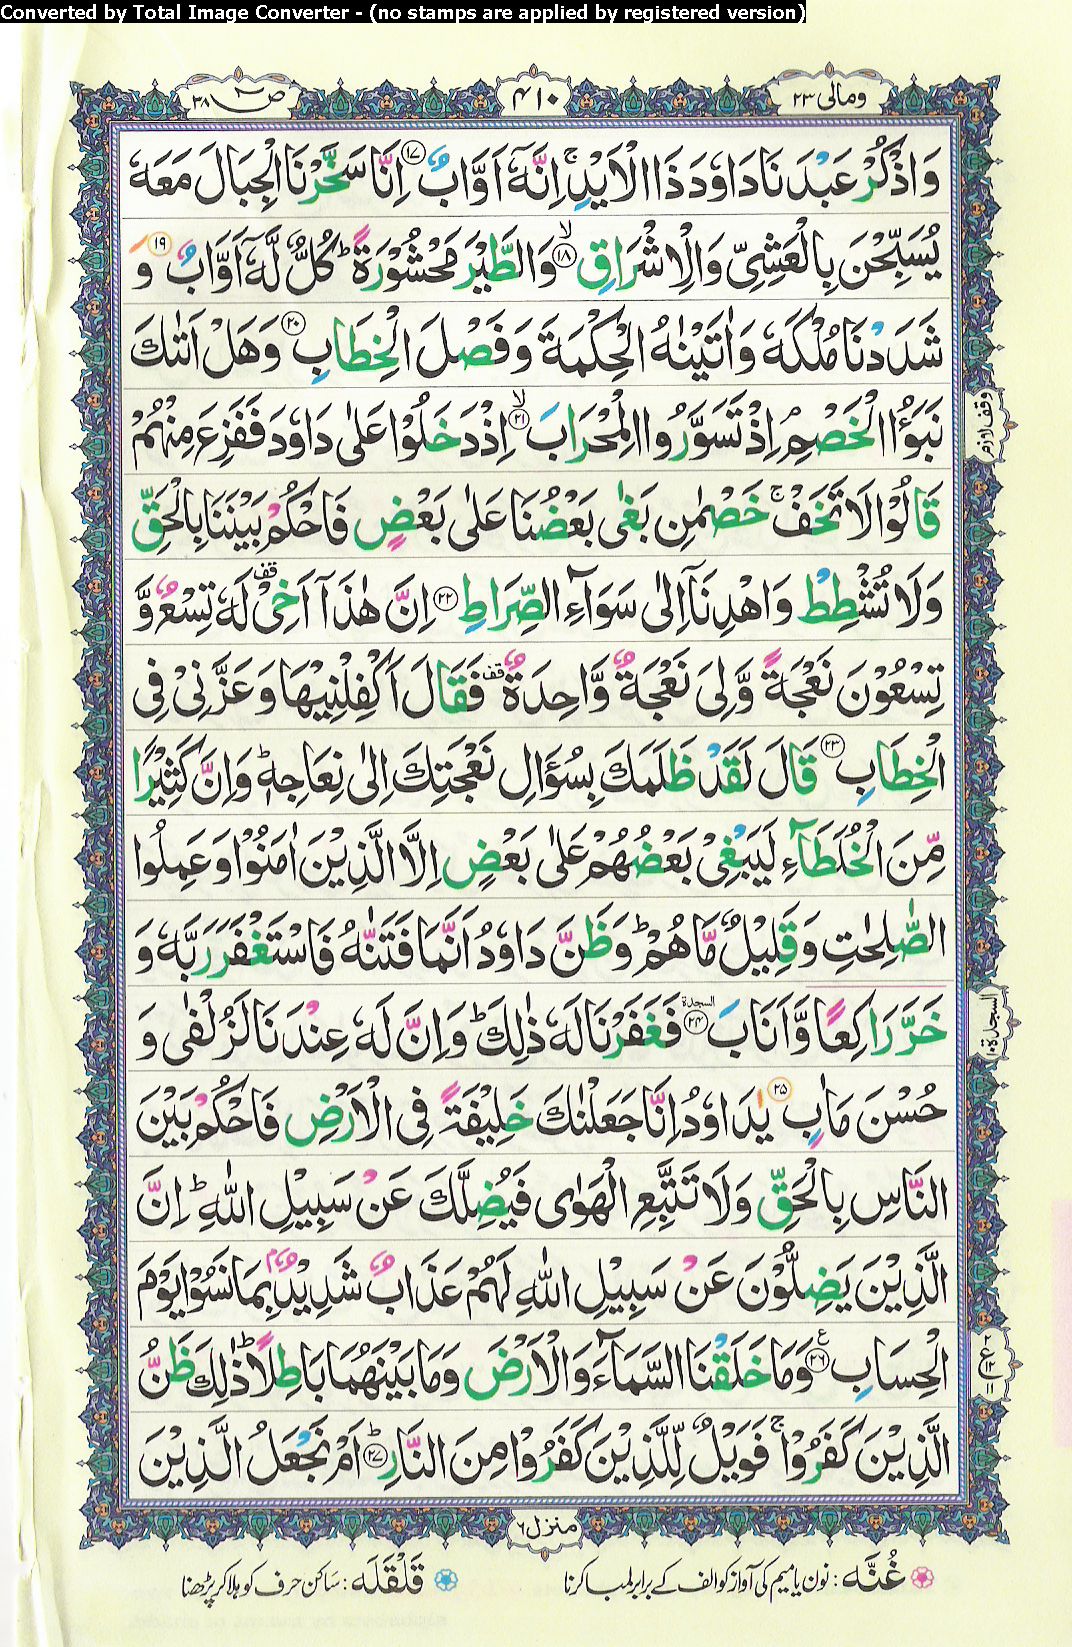 Converted by Total Image Converter - (no stamps are applied by registered version)
ومالی ۲۳
۴۱۰
صٓ ۳۸
وَاذْكُرْ عَبْدَنَا دَاوٗدَ ذَا الْاَيْدِ ۚ اِنَّهٗۤ اَوَّابٌ ﴿۱۷﴾ اِنَّا سَخَّرْنَا الْجِبَالَ مَعَهٗ
يُسَبِّحْنَ بِالْعَشِيِّ وَالْاِشْرَاقِ ۙ﴿۱۸﴾ وَالطَّيْرَ مَحْشُوْرَةً ؕ كُلٌّ لَّهٗۤ اَوَّابٌ ﴿۱۹﴾ وَ
شَدَدْنَا مُلْكَهٗ وَاٰتَيْنٰهُ الْحِكْمَةَ وَفَصْلَ الْخِطَابِ ﴿۲۰﴾ وَهَلْ اَتٰىكَ
نَبَؤُا الْخَصْمِ ۘ اِذْ تَسَوَّرُوا الْمِحْرَابَ ۙ﴿۲۱﴾ اِذْ دَخَلُوْا عَلٰى دَاوٗدَ فَفَزِعَ مِنْهُمْ
قَالُوْا لَا تَخَفْ ۚ خَصْمٰنِ بَغٰى بَعْضُنَا عَلٰى بَعْضٍ فَاحْكُمْ بَيْنَنَا بِالْحَقِّ
وَلَا تُشْطِطْ وَاهْدِنَاۤ اِلٰى سَوَآءِ الصِّرَاطِ ﴿۲۲﴾ اِنَّ هٰذَاۤ اَخِيْ قف لَهٗ تِسْعٌ وَّ
تِسْعُوْنَ نَعْجَةً وَّلِيَ نَعْجَةٌ وَّاحِدَةٌ قف فَقَالَ اَكْفِلْنِيْهَا وَعَزَّنِيْ فِي
الْخِطَابِ ﴿۲۳﴾ قَالَ لَقَدْ ظَلَمَكَ بِسُؤَالِ نَعْجَتِكَ اِلٰى نِعَاجِهٖ ؕ وَاِنَّ كَثِيْرًا
مِّنَ الْخُلَطَآءِ لَيَبْغِيْ بَعْضُهُمْ عَلٰى بَعْضٍ اِلَّا الَّذِيْنَ اٰمَنُوْا وَعَمِلُوا
الصّٰلِحٰتِ وَقَلِيْلٌ مَّا هُمْ ؕ وَظَنَّ دَاوٗدُ اَنَّمَا فَتَنّٰهُ فَاسْتَغْفَرَ رَبَّهٗ وَ
خَرَّ رَاكِعًا وَّاَنَابَ السجدة ﴿۲۴﴾ فَغَفَرْنَا لَهٗ ذٰلِكَ ؕ وَاِنَّ لَهٗ عِنْدَنَا لَزُلْفٰى وَ
حُسْنَ مَاٰبٍ ﴿۲۵﴾ يٰدَاوٗدُ اِنَّا جَعَلْنٰكَ خَلِيْفَةً فِي الْاَرْضِ فَاحْكُمْ بَيْنَ
النَّاسِ بِالْحَقِّ وَلَا تَتَّبِعِ الْهَوٰى فَيُضِلَّكَ عَنْ سَبِيْلِ اللّٰهِ ؕ اِنَّ
الَّذِيْنَ يَضِلُّوْنَ عَنْ سَبِيْلِ اللّٰهِ لَهُمْ عَذَابٌ شَدِيْدٌۢ بِمَا نَسُوْا يَوْمَ
الْحِسَابِ ﴿۲۶﴾ع وَمَا خَلَقْنَا السَّمَآءَ وَالْاَرْضَ وَمَا بَيْنَهُمَا بَاطِلًا ؕ ذٰلِكَ ظَنُّ
الَّذِيْنَ كَفَرُوْا ۚ فَوَيْلٌ لِّلَّذِيْنَ كَفَرُوْا مِنَ النَّارِ ؕ﴿۲۷﴾ اَمْ نَجْعَلُ الَّذِيْنَ
وقف لازم
السجدة ۱۰
ع ۲ ۱۲ ۱۱
منزل ۶
غُنَّه : نون یا میم کی آواز کو الف کے برابر لمبا کرنا
قَلْقَلَه : ساکن حرف کو ہلا کر پڑھنا